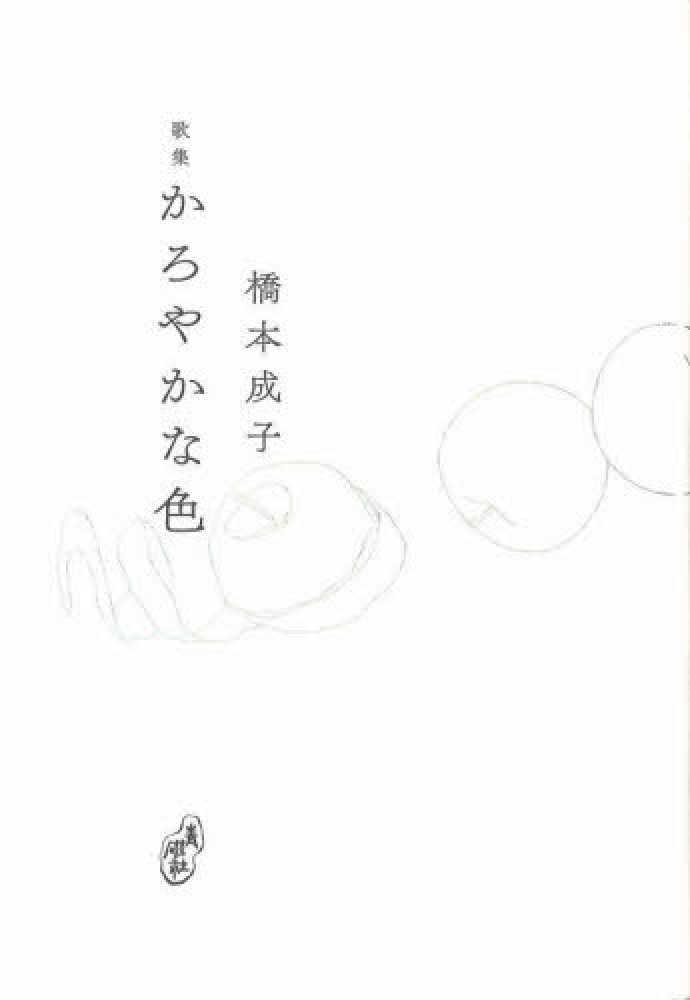 歌集
かろやかな色
橋本成子
青磁社